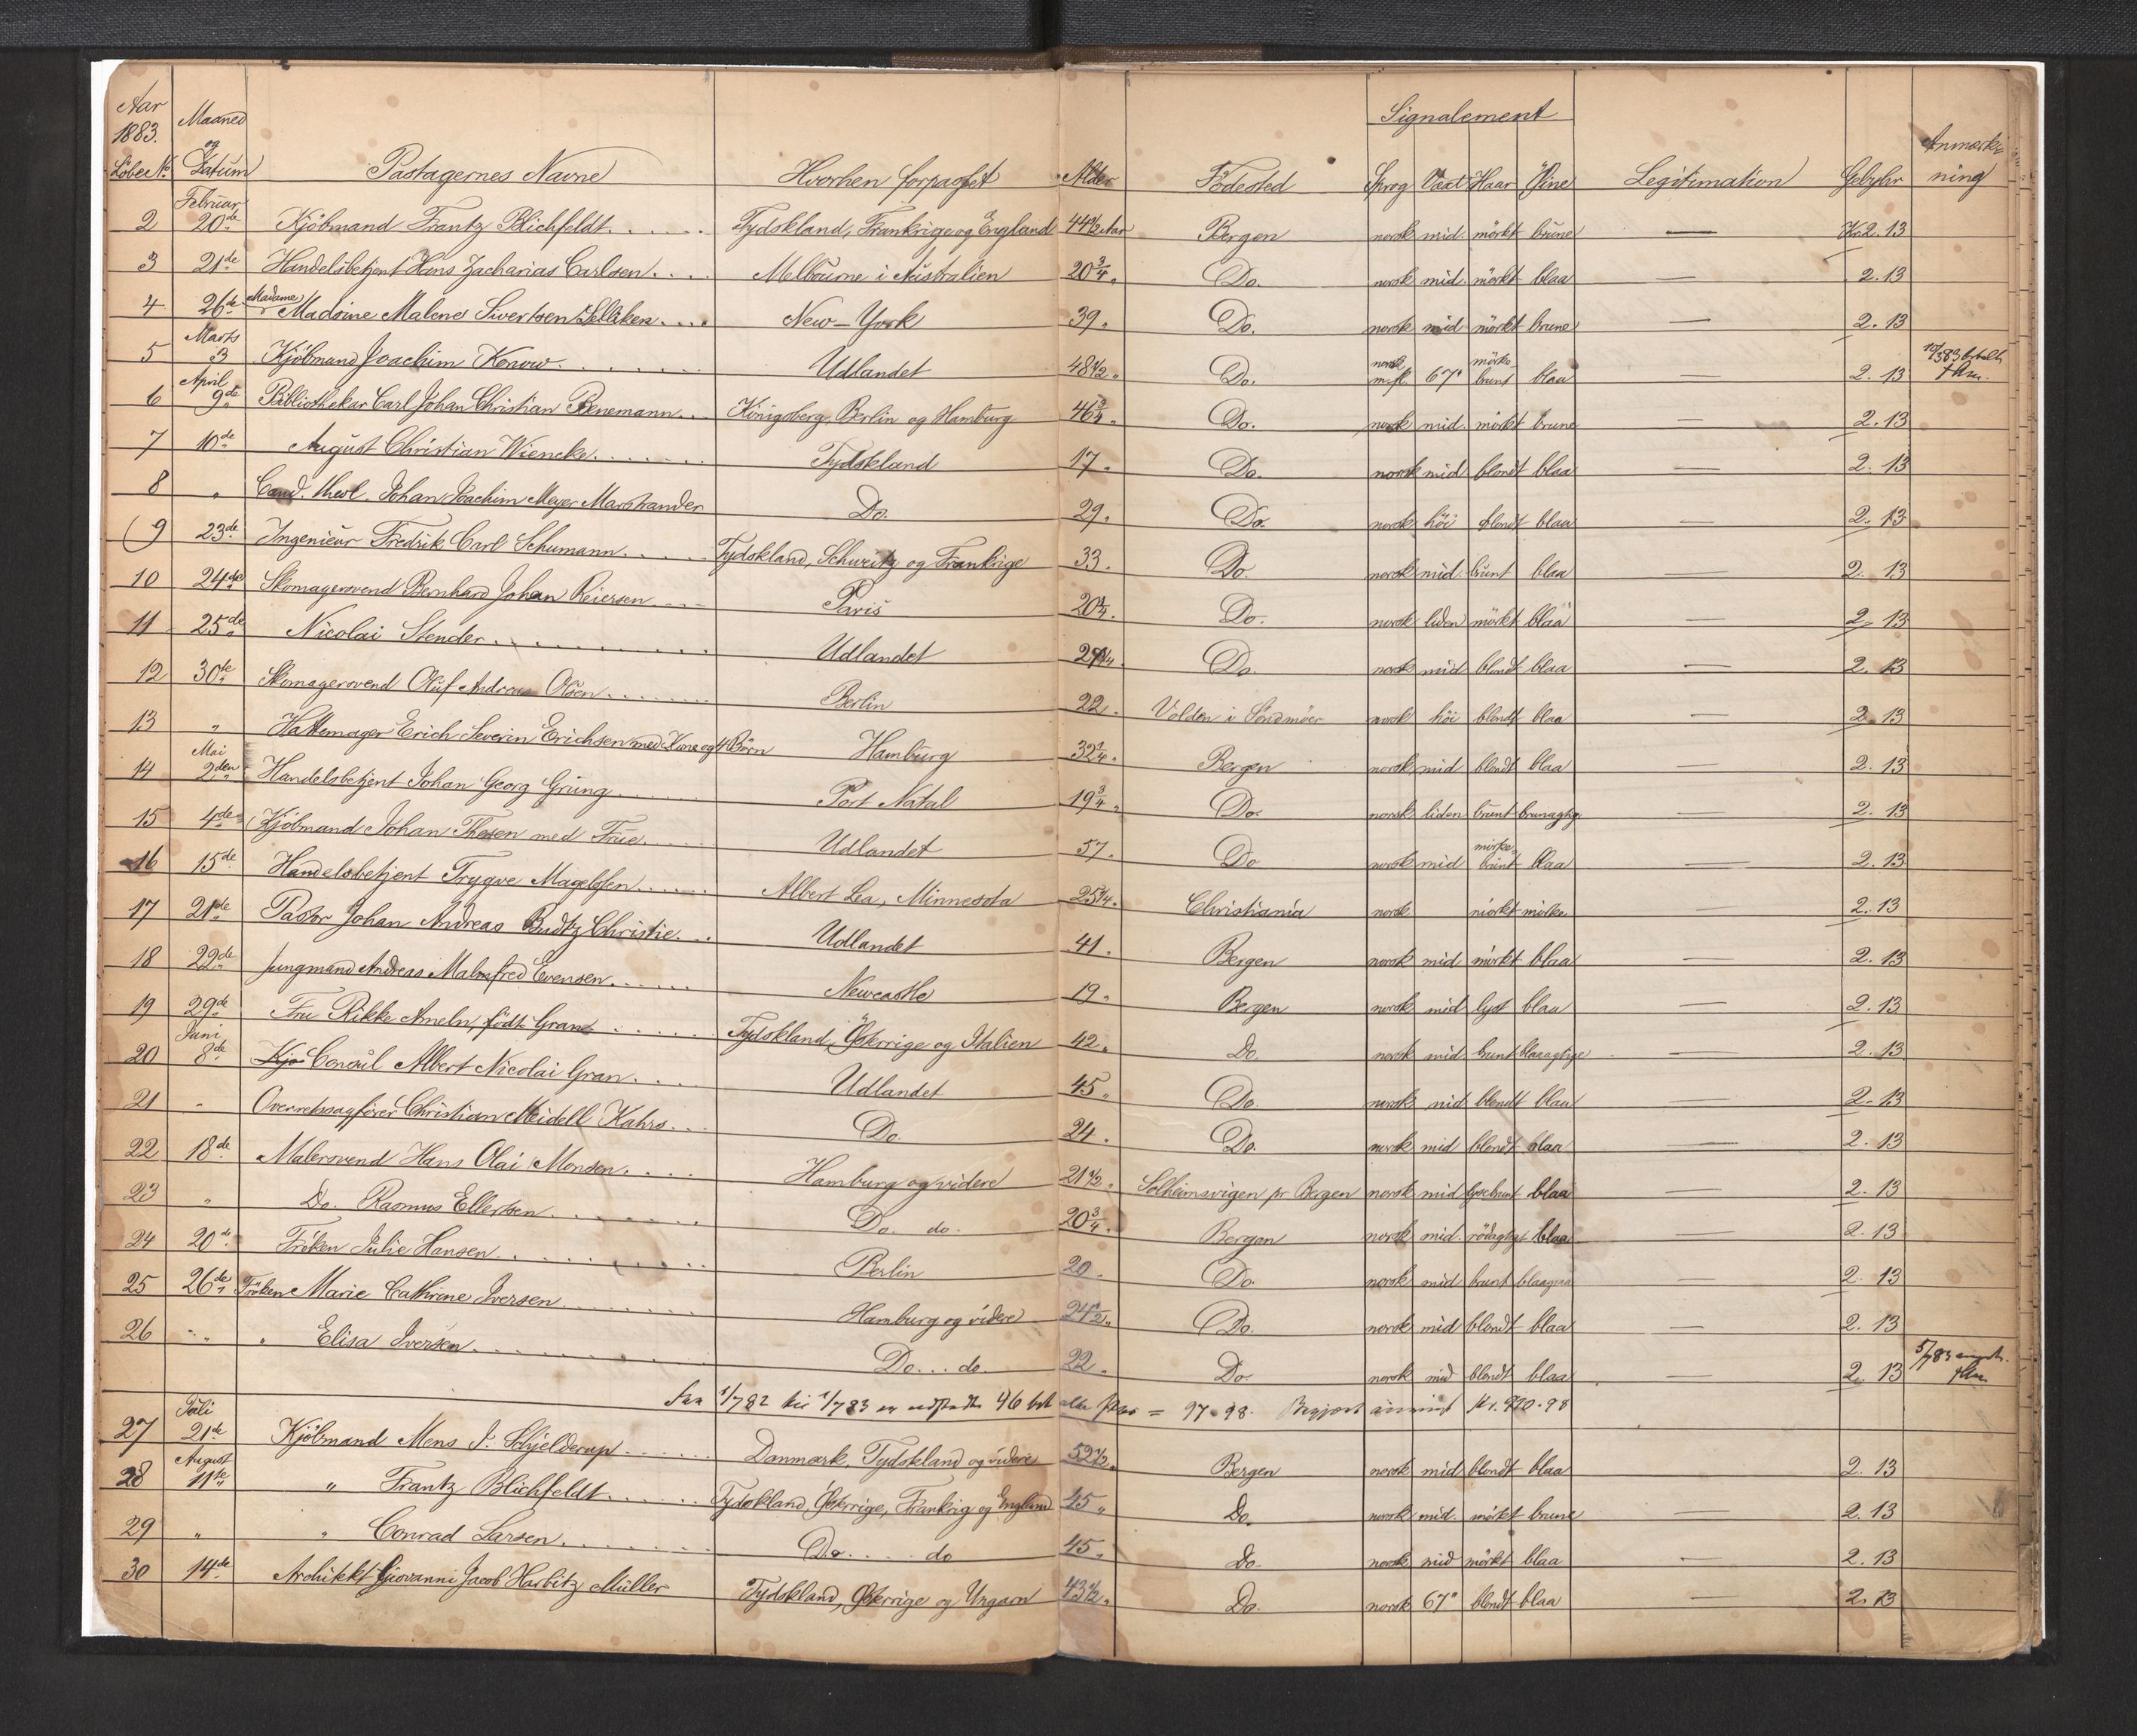 Aar 1883. Löbe No. Maaned og Datum Pastagernes Navne Hvorhen forpasset Alder Födested Signalement Sprog Vext Haar Öine Legitimation Gebyhr Anmærkning
Februar
2 20de Kjöbmand Frantz Blichfeldt Tydskland, Frankrige og England 44 1/2 Aar Bergen norsk mid. mörkt brune — Kr. 2.13
3 21de Handelsbetjent Hans Zacharias Carlsen Melbourne i Australien 20 3/4 " Do. norsk mid. mörkt blaa — 2.13
4 26de Madame Madsine Malene Sivertsen Selliken New-York 39 " Do. norsk mid mörkt brune — 2.13
Marts
5 3 Kjöbmand Joachim Konow Udlandet 48 1/2 " Do. norsk m. fl. 67" mörke brunt blaa — 2.13
April
6 9de Bibliothekar Carl Johan Christian Benemann Königsberg, Berlin og Hamburg 46 3/4 " Do. norsk mid. mörkt brune — 2.13
7 10de August Christian Wiencke Tydskland 17 " Do. norsk mid blondt blaa — 2.13
8 " Cand. theol. Johan Joachim Meyer Marstrander Do. 29 " Do. norsk höi blondt blaa — 2.13
9 23de Ingenieur Fredrik Carl Schumann Tydskland, Schweitz og Frankrige 33 " Do. norsk mid. brunt blaa — 2.13
10 24de Skomagersvend Bernhard Johan Reiersen Paris 20 1/4 " Do. norsk liden mörkt blaa — 2.13
11 25de Nicolai Stender Udlandet Do. norsk mid blondt blaa — 2.13
12 30te Skomagersvend Oluf Andreas Olsen Berlin 22 " Volden i Söndmöer norsk höi blondt blaa — 2.13
13 " Hattemager Erich Severin Erichsen med Kone og 4 Börn Hamburg 32 1/4 " Bergen norsk mid blondt blaa — 2.13
Mai
14 2den Handelsbetjent Johan Georg Grung Port Natal 19 3/4 " Do. norsk liden brunt brunagtig — 2.13
15 4de Kjöbmand Johan Thesen med Frue Udlandet 57 " Do norsk mid mörke brunt blaa — 2.13
16 15de Handelsbetjent Trygve Magelssen Albert Lea, Minnesota 25 1/4 " Christiania norsk mörkt mörke — 2.13
17 21de Pastor Johan Andreas Budtz Christie Udlandet 41 " Bergen norsk mid mörkt blaa — 2.13
18 22de Jungmand Andreas Malmfred Evensen Newcastle 19 " Bergen norsk mid lyst blaa — 2.13
19 29de Fru Rikke Ameln, födt Gran Tydskland, Österrige og Italien 42 " Do. norsk mid brunt blaaagtige — 2.13
Juni
20 8de Kjö Consul Albert Nicolai Gran Udlandet 45 " Do. norsk mid blondt blaa — 2.13
21 " Overretssagförer Christian Meidell Kahrs Do. 24 " Do. norsk mid blondt blaa — 2.13
22 18de Malersvend Hans Olai Monsen Hamburg og videre 21 1/2 " Solheimsvigen pr Bergen norsk mid lysebrunt blaa — 2.13
23 " Do. Rasmus Ellertsen Do. do. 20 3/4 " Bergen norsk mid. rödagtigt blaa — 2.13
24 20de Fröken Julie Hansen Berlin 20 " Do. norsk mid brunt blaagraa — 2.13
25 26de Fröken Marie Cathrine Iversen Hamburg og videre 24 1/2 " Do. norsk mid blondt blaa — 2.13
26 " " Elisa Iversen Do. do. 22 " Do. norsk mid blondt blaa — 2.13
fra 1/7 82 til 1/7 83 er udstedt 46 = 97.98.
Juli
27 21de Kjöbmand Mens J. Schjelderup Danmark, Tydskland og videre 52 1/2 " Bergen norsk mid blondt blaa — 2.13
August
28 11te " Frantz Blichfeldt Tydskland, Österrige, Frankrig og England 45 " Do. norsk mid. mörkt brune — 2.13
29 " " Conrad Larsen Do. do 45 " Do. norsk mid mörkt blaa — 2.13
30 14de Architekt Giovanni Jacob Harbitz Müller Tydskland, Österrige og Ungarn 43 1/2 " Do. norsk 67" blondt blaa — 2.13